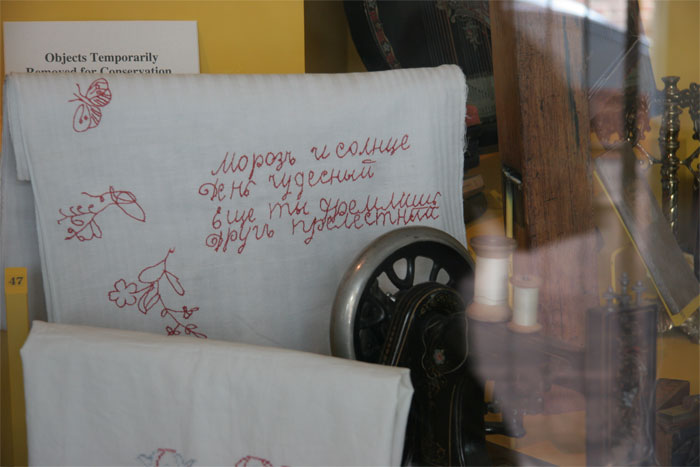 Objects Temporarily
Removed for Conservation
Морозъ и солнце
День чудесный
Еще ты дремлишь
Другъ прелестный
47